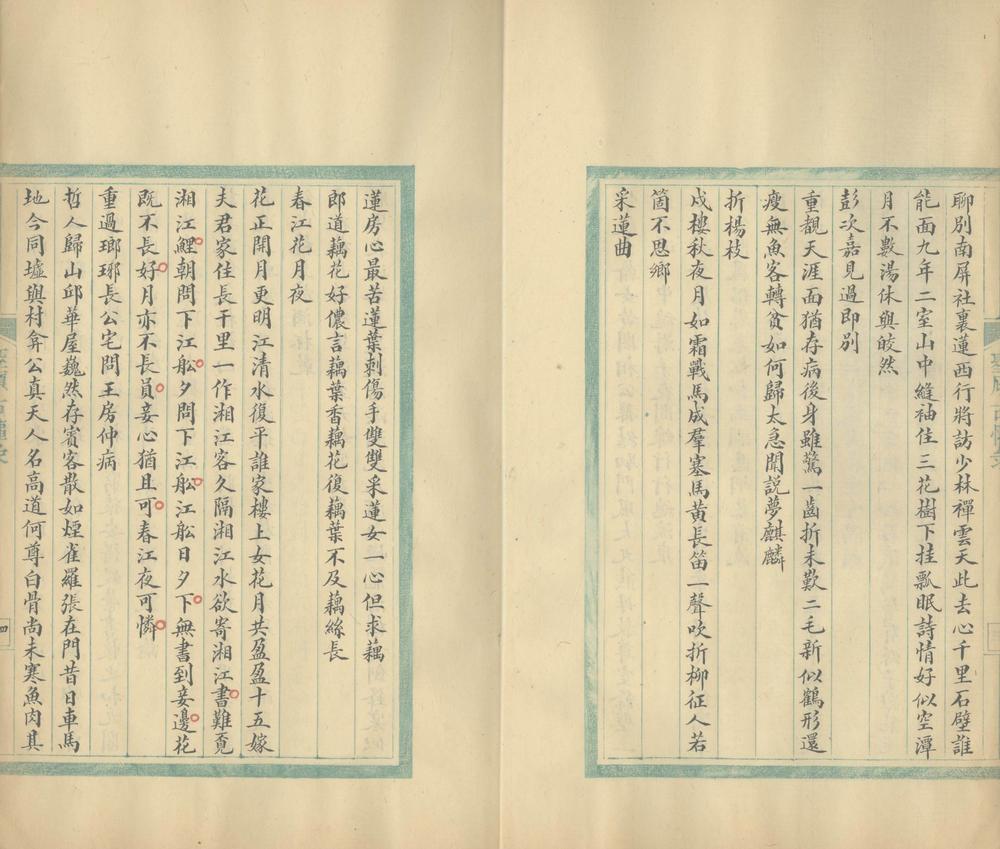 聊別南屏社裏蓮西行將訪少林禪雲天此去心千里石壁誰
能面九年二室山中縫袖住三花樹下挂瓢眠詩情好似空潭
月不數湯休與皎然
彭次嘉見過即別
重觀天涯面猶存病後身雖驚一齒折未歎二毛新似鶴形還
瘦無魚客轉貧如何歸太急閒說夢麒麟
折楊枝
戍樓秋夜月如霜戰馬成羣塞馬黃長笛一聲吹折柳征人若
箇不思鄉
采蓮曲
蓮房心最苦蓮葉刺傷手雙雙采蓮女一心但求藕
郎道藕花好儂言藕葉香藕花復藕葉不及藕絲長
春江花月夜
花正開月更明江清水復平誰家樓上女花月共盈盈十五嫁
夫君家住長干里一作湘江客久隔湘江水欲寄湘江書難覓
湘江鯉朝問下江舩夕問下江舩江舩日夕下無書到妾邊花
既不長好月亦不長員妾心猶且可春江夜可憐
重過瑯琊長公宅問王房仲病
哲人歸山邱華屋巍然存賓客散如煙雀羅張在門昔日車馬
地今同墟與村弇公真天人名高道何尊白骨尚未寒魚肉其
四